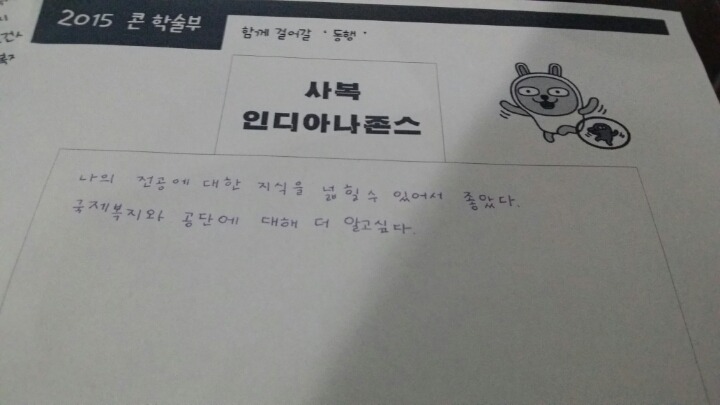 2015 콘 학술부
함께 걸어갈 '동행'
사복
인디아나존스
나의 전공에 대한 지식을 넓힐수 있어서 좋았다.
국제복지와 공단에 대해 더 알고싶다.